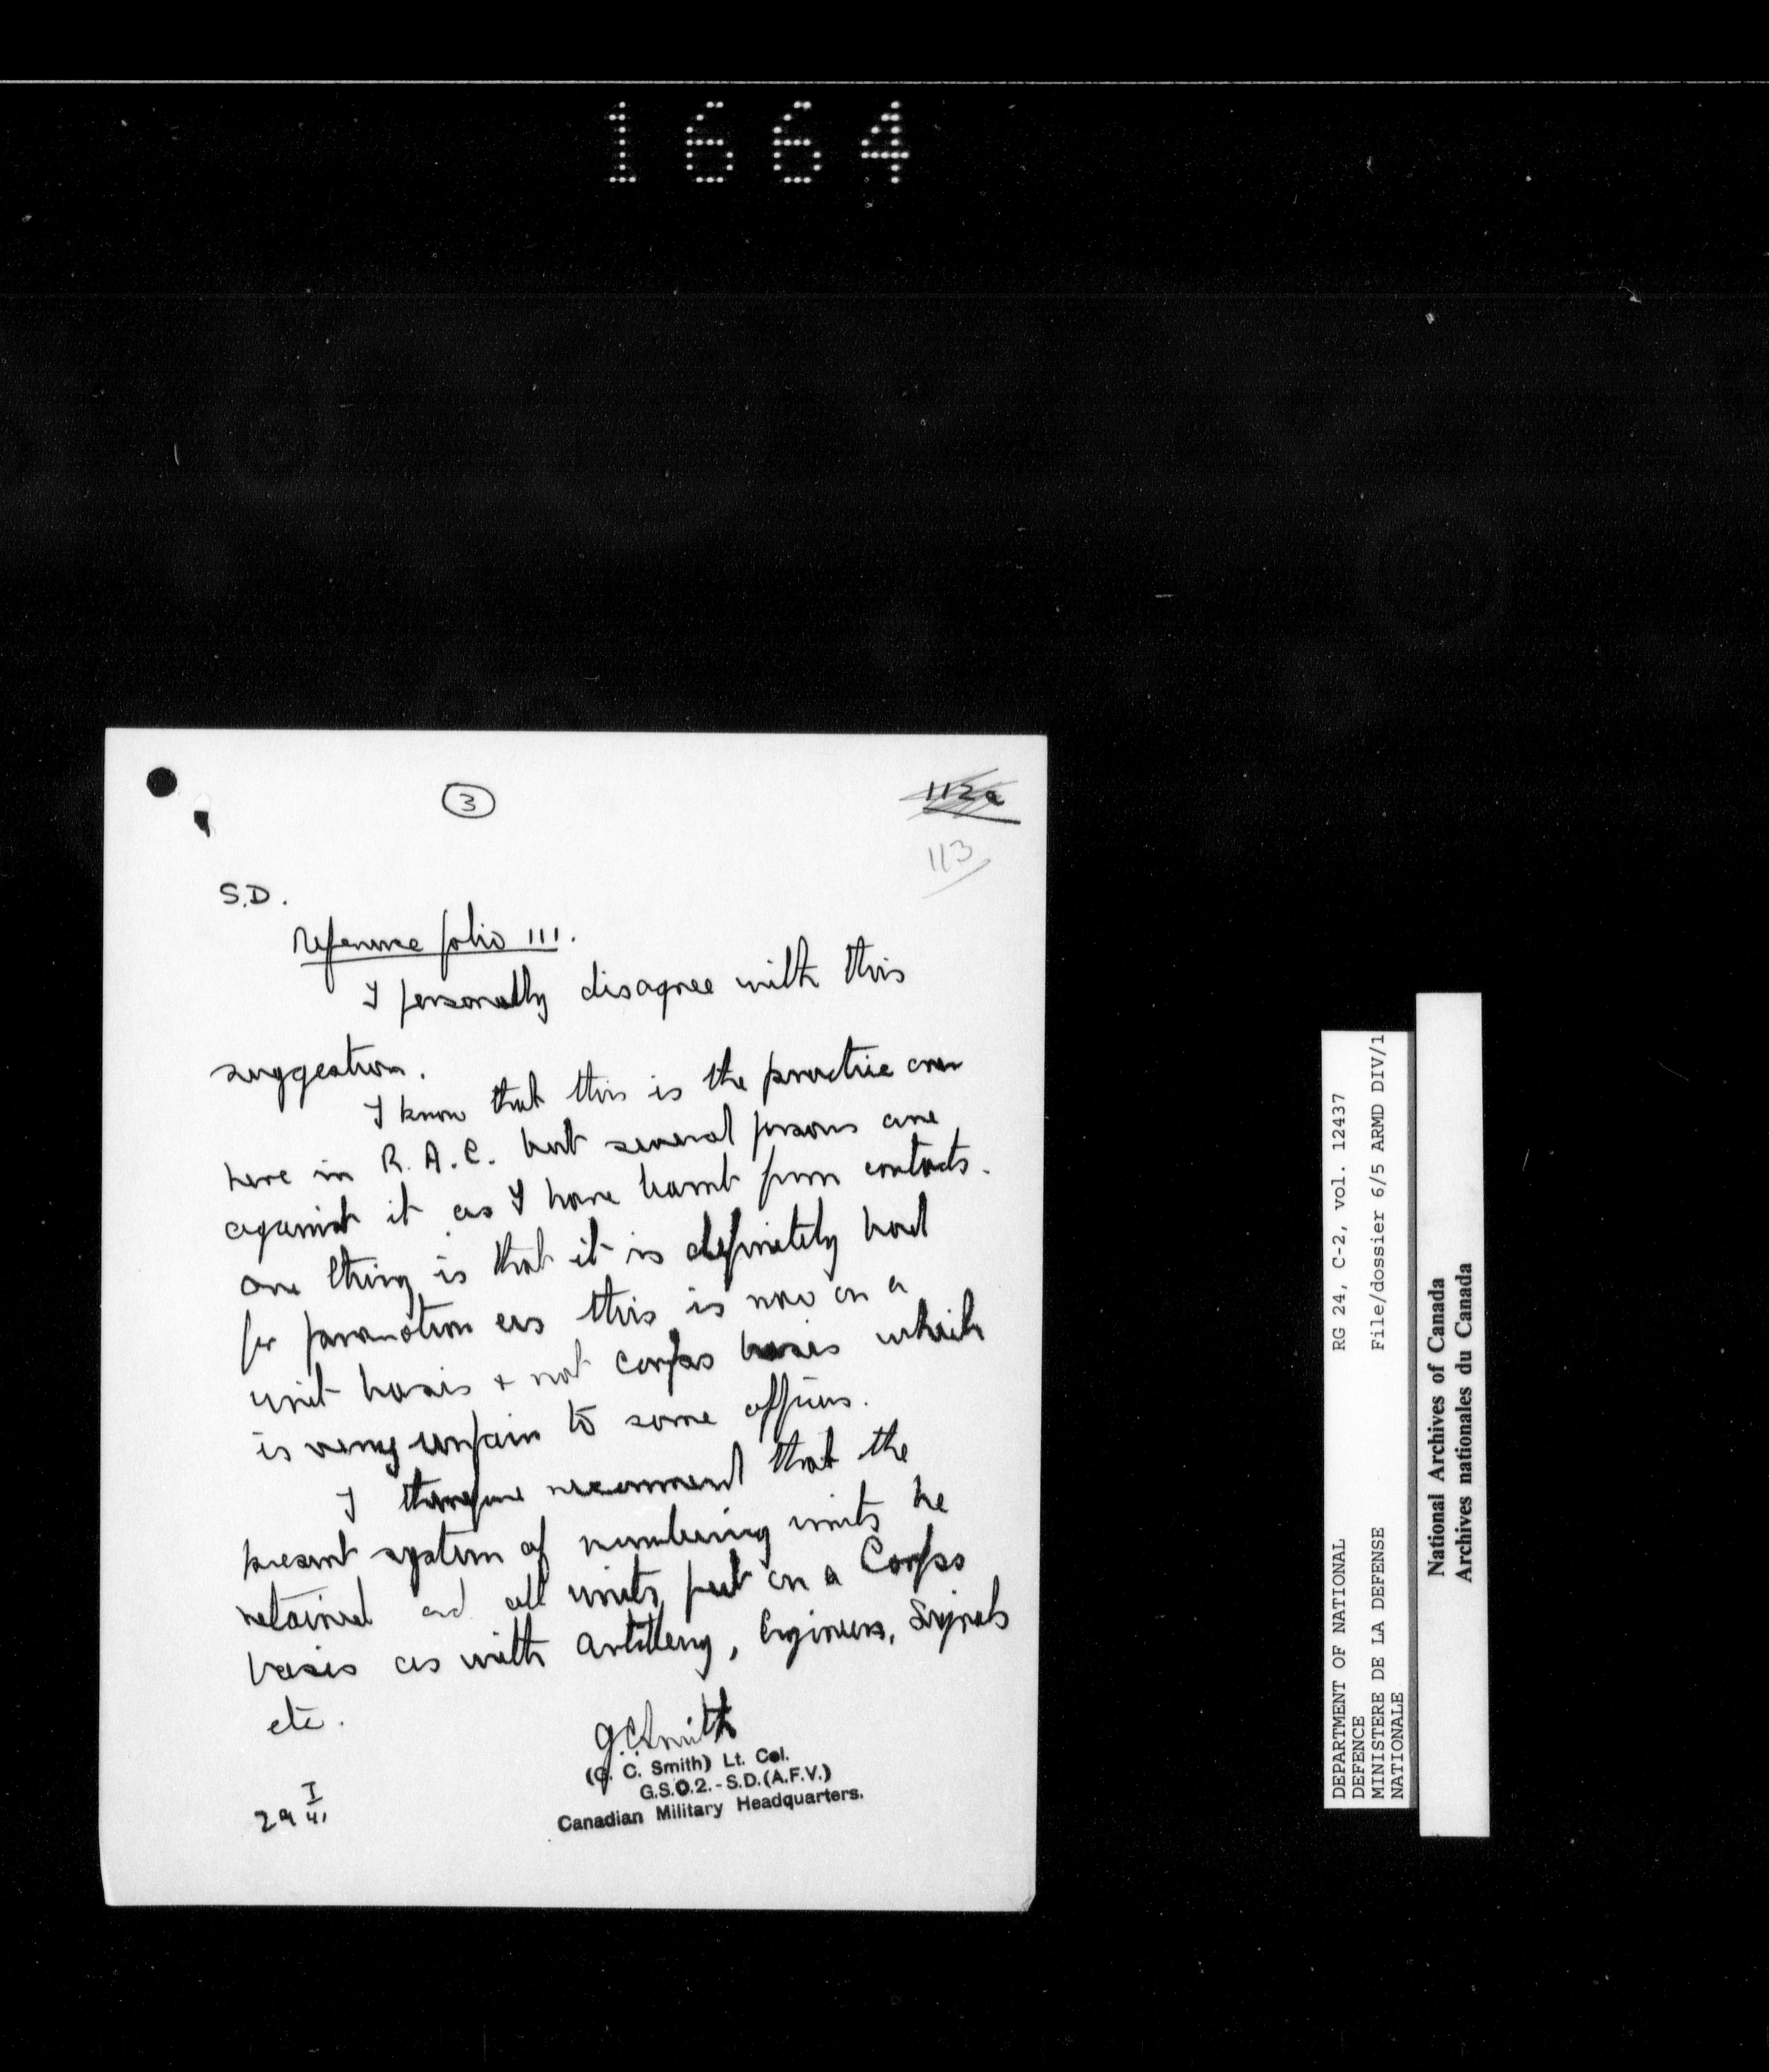 1664
3
112a
113
S.D.
Reference folio 111.
I personally disagree with this
suggestion.
I know that this is the practice over
here in R.A.C. but several persons are
against it as I have learnt from contacts.
One thing is that it is definitely bad
for promotion as this is now on a
unit basis + not Corps basis which
is very unfair to some officers.
I therefore recommend that the
present system of numbering units be
retained and all units put on a Corps
basis as with Artillery, Engineers, Signals
etc.
G.C. Smith
(G. C. Smith) Lt. Col.
G.S.O.2.-S.D.(A.F.V.)
Canadian Military Headquarters.
29 I/41
DEPARTMENT OF NATIONAL RG 24, C-2, vol. 12437
DEFENCE
MINISTERE DE LA DEFENSE File/dossier 6/5 ARMD DIV/1
NATIONALE
National Archives of Canada
Archives nationales du Canada